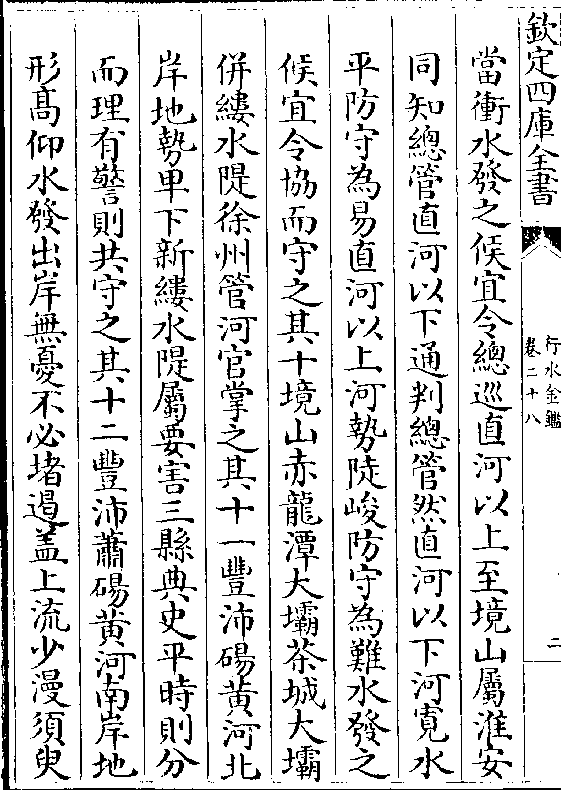 欽定四庫全書
行水金鑑
卷二十八
二
當衝水發之候宜令總巡直河以上至境山屬淮安
同知總管直河以下通判總管然直河以下河寛水
平防守為易直河以上河勢陡峻防守為難水發之
候宜令協而守之其十境山赤龍潭大壩茶城大壩
併縷水隄徐州管河官掌之其十一豐沛碭黄河北
岸地勢卑下新縷水隄屬要害三縣典史平時則分
而理有警則共守之其十二豐沛蕭碭黄河南岸地
形髙仰水發出岸無憂不必堵遏盖上流少漫須臾